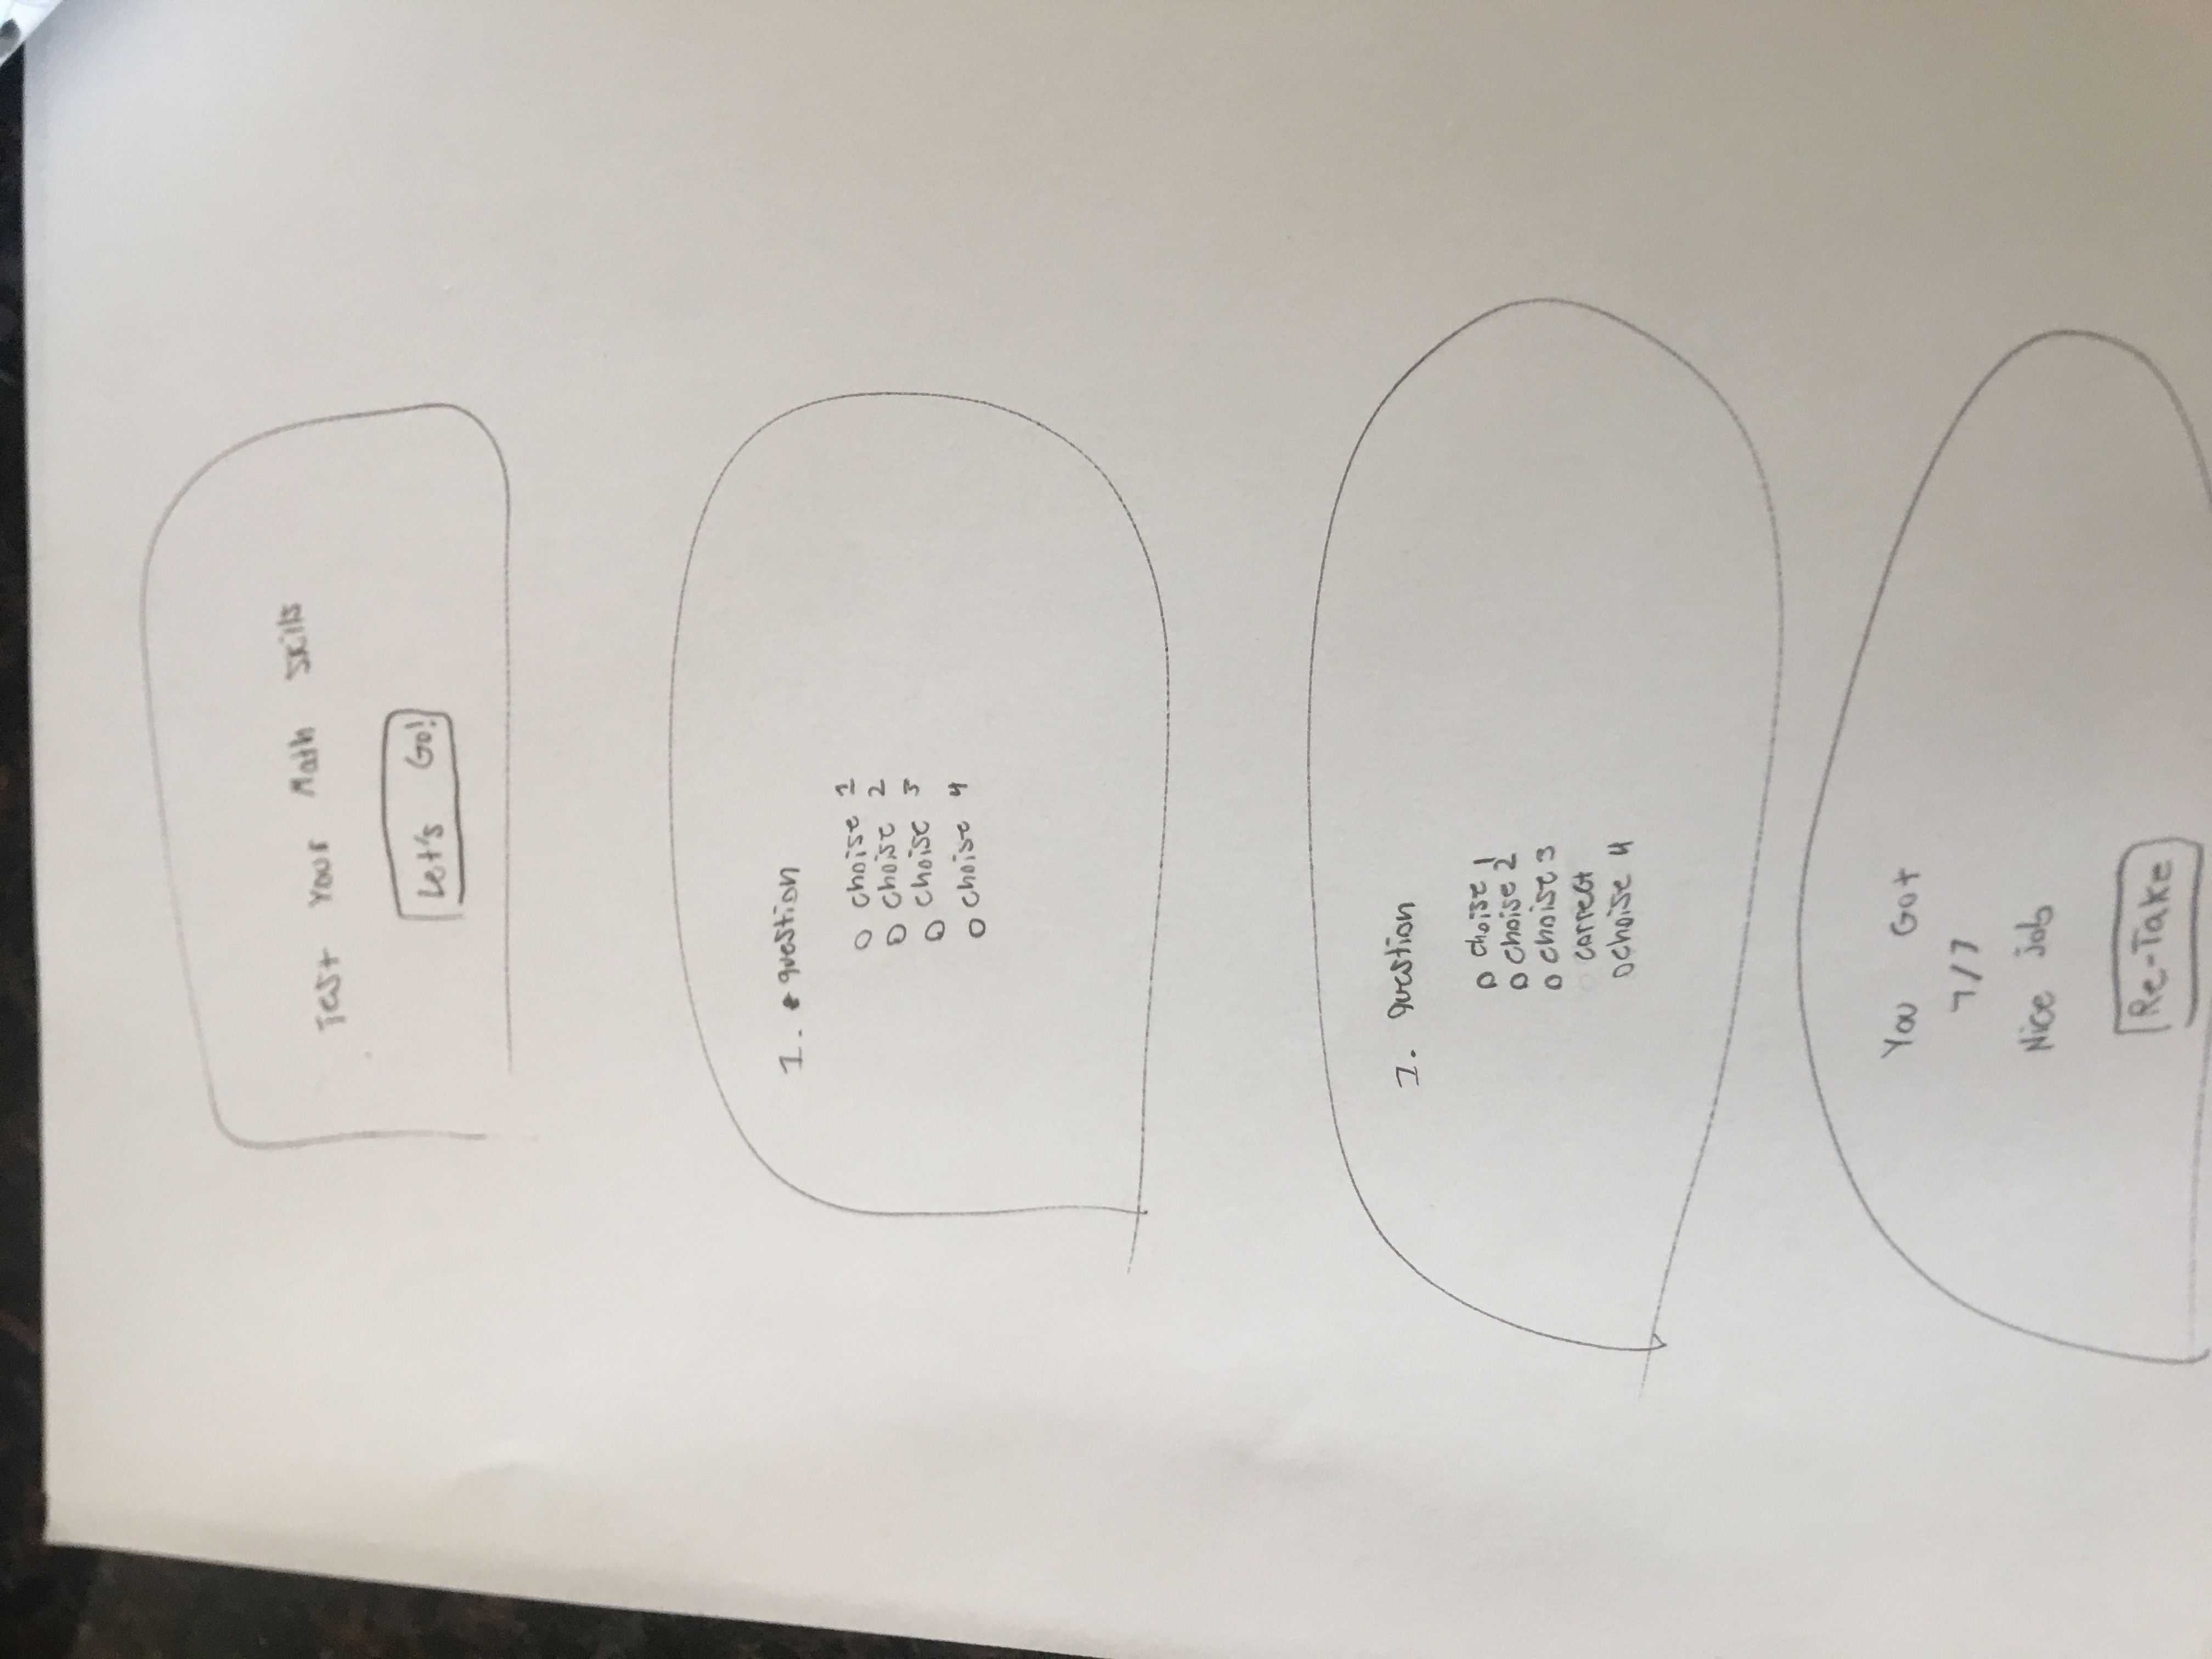 Test Your Math Skills
Let's Go!
1. question
choise 1
choise 2
choise 3
choise 4
1. question
choise 1
choise 2
choise 3
correct
choise 4
You Got
7/7
Nice job
Re-Take